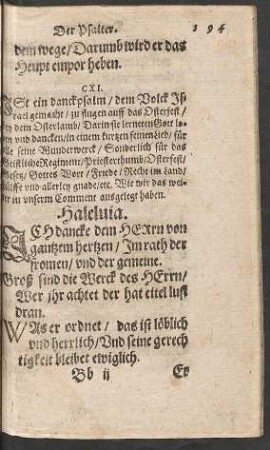 Der Psalter. 194
dem wege / Darumb wird er das
Heupt empor heben.
CXI.
ISt ein danckpsalm / dem Volck Js-
rael gemacht / zu singen auff das Osterfest /
dem Osterlamb / Darin sie lerneten Gott lo-
ben vnd dancken / in einem kurtzen feinen Lied / für
alle seine Wunderwerck / Sonderlich für das
Geistliche Regiment / Priesterthumb / Osterfest /
Gesetz / Gottes Wort / Friede / Recht im Land /
Hülffe vnd allerley gnade / etc. Wie wir das wei-
ter in vnserm Comment ausgelegt haben.
Haleluia.
JCH dancke dem HErrn von
gantzem hertzen / Im rath der
fromen / vnd der gemeine.
Groß sind die Werck des HErrn /
Wer jhr achtet der hat eitel lust
dran.
WAs er ordnet / das ist löblich
vnd herrlich / Vnd seine gerech
tigkeit bleibet ewiglich.
Bb ij Er